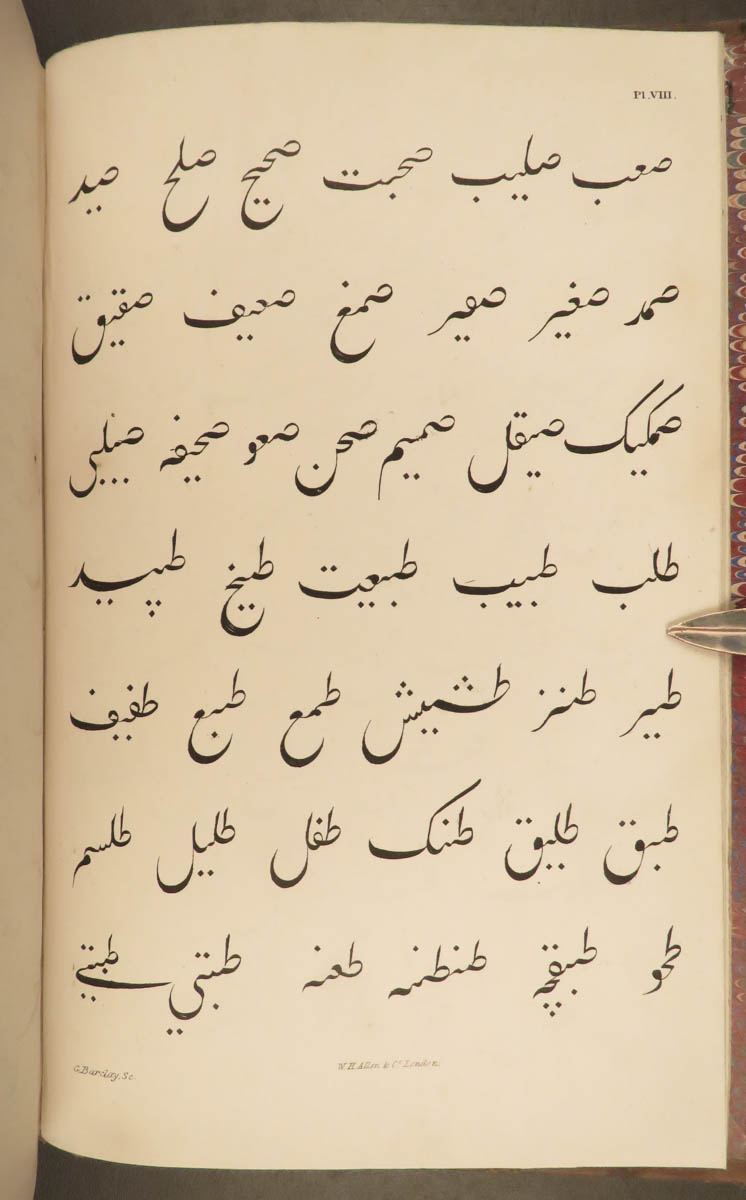 Pl.VIII.
صعب صلیب صحبت صحیح صلح صید
صمد صغیر صفیر صمغ صعیف صقیق
صمکیک صیقل صمیم صحن صعو صحیفه صیلبی
طلب طبیب طبعیت طبیخ طپید
طیر طنز طشیش طمع طبع طفیف
طبق طلیق طنک طفل طلیل طلسم
طحو طبقچه طنطنه طعنه طبتي طبتے
G.Barclay, Sc.
W.H.Allen & Co. London.